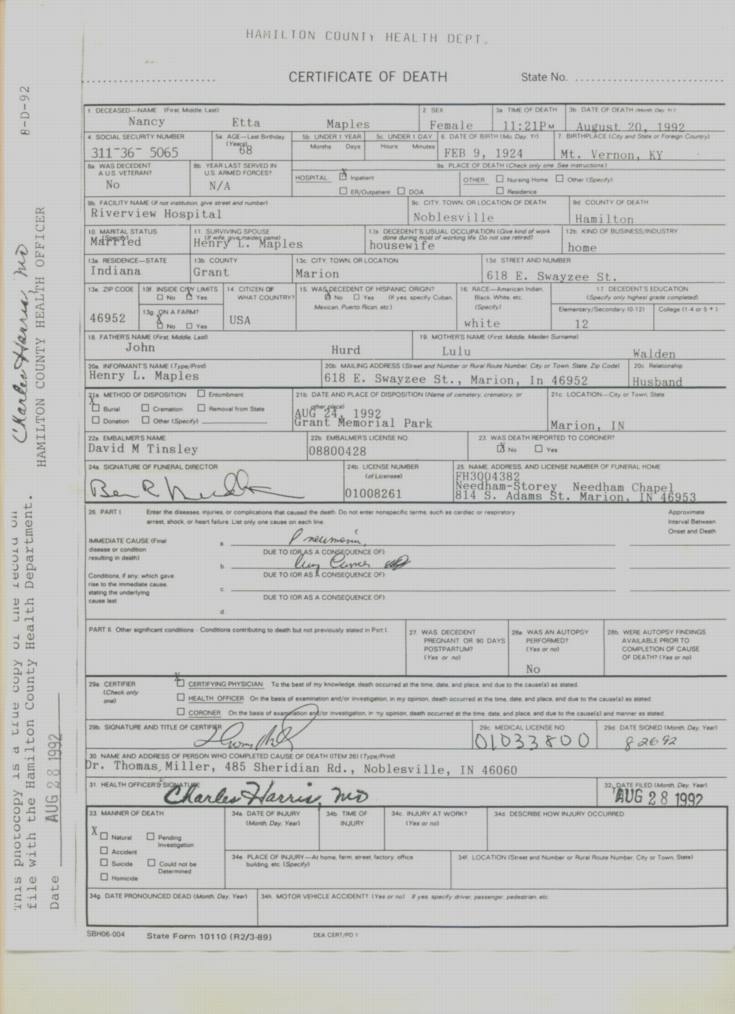 HAMILTON COUNTY HEALTH DEPT.
CERTIFICATE OF DEATH State No.
1 DECEASED—NAME (First, Middle, Last) 2 SEX 3a TIME OF DEATH 3b DATE OF DEATH (Month, Day, Yr)
Nancy Etta Maples Female 11:21PM August 20, 1992
4 SOCIAL SECURITY NUMBER 5a AGE—Last Birthday (Years) 5b UNDER 1 YEAR 5c UNDER 1 DAY 6 DATE OF BIRTH (Mo, Day, Yr) 7 BIRTHPLACE (City and State or Foreign Country)
Months Days Hours Minutes
311-36- 5065 68 FEB 9, 1924 Mt. Vernon, KY
8a WAS DECEDENT A U.S. VETERAN? 8b YEAR LAST SERVED IN U.S. ARMED FORCES? 9a PLACE OF DEATH (Check only one. See instructions)
No N/A HOSPITAL X Inpatient ER/Outpatient DOA OTHER Nursing Home Other (Specify) Residence
9b FACILITY NAME (If not institution, give street and number) 9c CITY, TOWN, OR LOCATION OF DEATH 9d COUNTY OF DEATH
Riverview Hospital Noblesville Hamilton
10 MARITAL STATUS (Specify) 11 SURVIVING SPOUSE (If wife, give maiden name) 12a DECEDENT'S USUAL OCCUPATION (Give kind of work done during most of working life. Do not use retired) 12b KIND OF BUSINESS/INDUSTRY
Married Henry L. Maples housewife home
13a RESIDENCE—STATE 13b COUNTY 13c CITY, TOWN, OR LOCATION 13d STREET AND NUMBER
Indiana Grant Marion 618 E. Swayzee St.
13e ZIP CODE 13f INSIDE CITY LIMITS No X Yes 14 CITIZEN OF WHAT COUNTRY? 15 WAS DECEDENT OF HISPANIC ORIGIN? X No Yes (If yes, specify Cuban, Mexican, Puerto Rican, etc.) 16 RACE—American Indian, Black, White, etc. (Specify) 17 DECEDENT'S EDUCATION (Specify only highest grade completed)
13g ON A FARM? X No Yes Elementary/Secondary (0-12) College (1-4 or 5+)
46952 USA white 12
18 FATHER'S NAME (First, Middle, Last) 19 MOTHER'S NAME (First, Middle, Maiden Surname)
John Hurd Lulu Walden
20a INFORMANT'S NAME (Type/Print) 20b MAILING ADDRESS (Street and Number or Rural Route Number, City or Town, State, Zip Code) 20c Relationship
Henry L. Maples 618 E. Swayzee St., Marion, In 46952 Husband
21a METHOD OF DISPOSITION Entombment 21b DATE AND PLACE OF DISPOSITION (Name of cemetery, crematory, or other place) 21c LOCATION—City or Town, State
X Burial Cremation Removal from State AUG 24, 1992
Donation Other (Specify) Grant Memorial Park Marion, IN
22a EMBALMER'S NAME 22b EMBALMER'S LICENSE NO 23 WAS DEATH REPORTED TO CORONER?
David M Tinsley 08800428 X No Yes
24a SIGNATURE OF FUNERAL DIRECTOR 24b LICENSE NUMBER (of Licensee) 25 NAME, ADDRESS, AND LICENSE NUMBER OF FUNERAL HOME
FH3004382
Needham-Storey Needham Chapel
01008261 814 S. Adams St. Marion, IN 46953
26 PART I Enter the diseases, injuries, or complications that caused the death. Do not enter nonspecific terms, such as cardiac or respiratory arrest, shock, or heart failure. List only one cause on each line. Approximate Interval Between Onset and Death
IMMEDIATE CAUSE (Final disease or condition resulting in death) a Pneumonia
DUE TO (OR AS A CONSEQUENCE OF)
b Lung Cancer
Conditions, if any, which gave rise to the immediate cause, stating the underlying cause last DUE TO (OR AS A CONSEQUENCE OF)
c
DUE TO (OR AS A CONSEQUENCE OF)
d
PART II Other significant conditions - Conditions contributing to death but not previously stated in Part I 27 WAS DECEDENT PREGNANT OR 90 DAYS POSTPARTUM? (Yes or no) 28a WAS AN AUTOPSY PERFORMED? (Yes or no) 28b WERE AUTOPSY FINDINGS AVAILABLE PRIOR TO COMPLETION OF CAUSE OF DEATH? (Yes or no)
No
29a CERTIFIER (Check only one) X CERTIFYING PHYSICIAN To the best of my knowledge, death occurred at the time, date, and place, and due to the cause(s) as stated
HEALTH OFFICER On the basis of examination and/or investigation, in my opinion, death occurred at the time, date, and place, and due to the cause(s) as stated
CORONER On the basis of examination and/or investigation, in my opinion, death occurred at the time, date, and place, and due to the cause(s) and manner as stated
29b SIGNATURE AND TITLE OF CERTIFIER 29c MEDICAL LICENSE NO 29d DATE SIGNED (Month, Day, Year)
01033800 8 26 92
30 NAME AND ADDRESS OF PERSON WHO COMPLETED CAUSE OF DEATH (ITEM 26) (Type/Print)
Dr. Thomas Miller, 485 Sheridian Rd., Noblesville, IN 46060
31 HEALTH OFFICER'S SIGNATURE 32 DATE FILED (Month, Day, Year)
Charles Harris, MD AUG 28 1992
33 MANNER OF DEATH 34a DATE OF INJURY (Month, Day, Year) 34b TIME OF INJURY 34c INJURY AT WORK? (Yes or no) 34d DESCRIBE HOW INJURY OCCURRED
X Natural Pending Investigation
Accident
Suicide Could not be Determined
Homicide
34e PLACE OF INJURY—At home, farm, street, factory, office building, etc. (Specify) 34f LOCATION (Street and Number or Rural Route Number, City or Town, State)
34g DATE PRONOUNCED DEAD (Month, Day, Year) 34h MOTOR VEHICLE ACCIDENT? (Yes or no) If yes, specify driver, passenger, pedestrian, etc.
SBH06-004 State Form 10110 (R2/3-89) DEA CERT/PD 1
This photocopy is a true copy of the record on
file with the Hamilton County Health Department.
Date AUG 28 1992
Charles Harris, MD
HAMILTON COUNTY HEALTH OFFICER
8-D-92